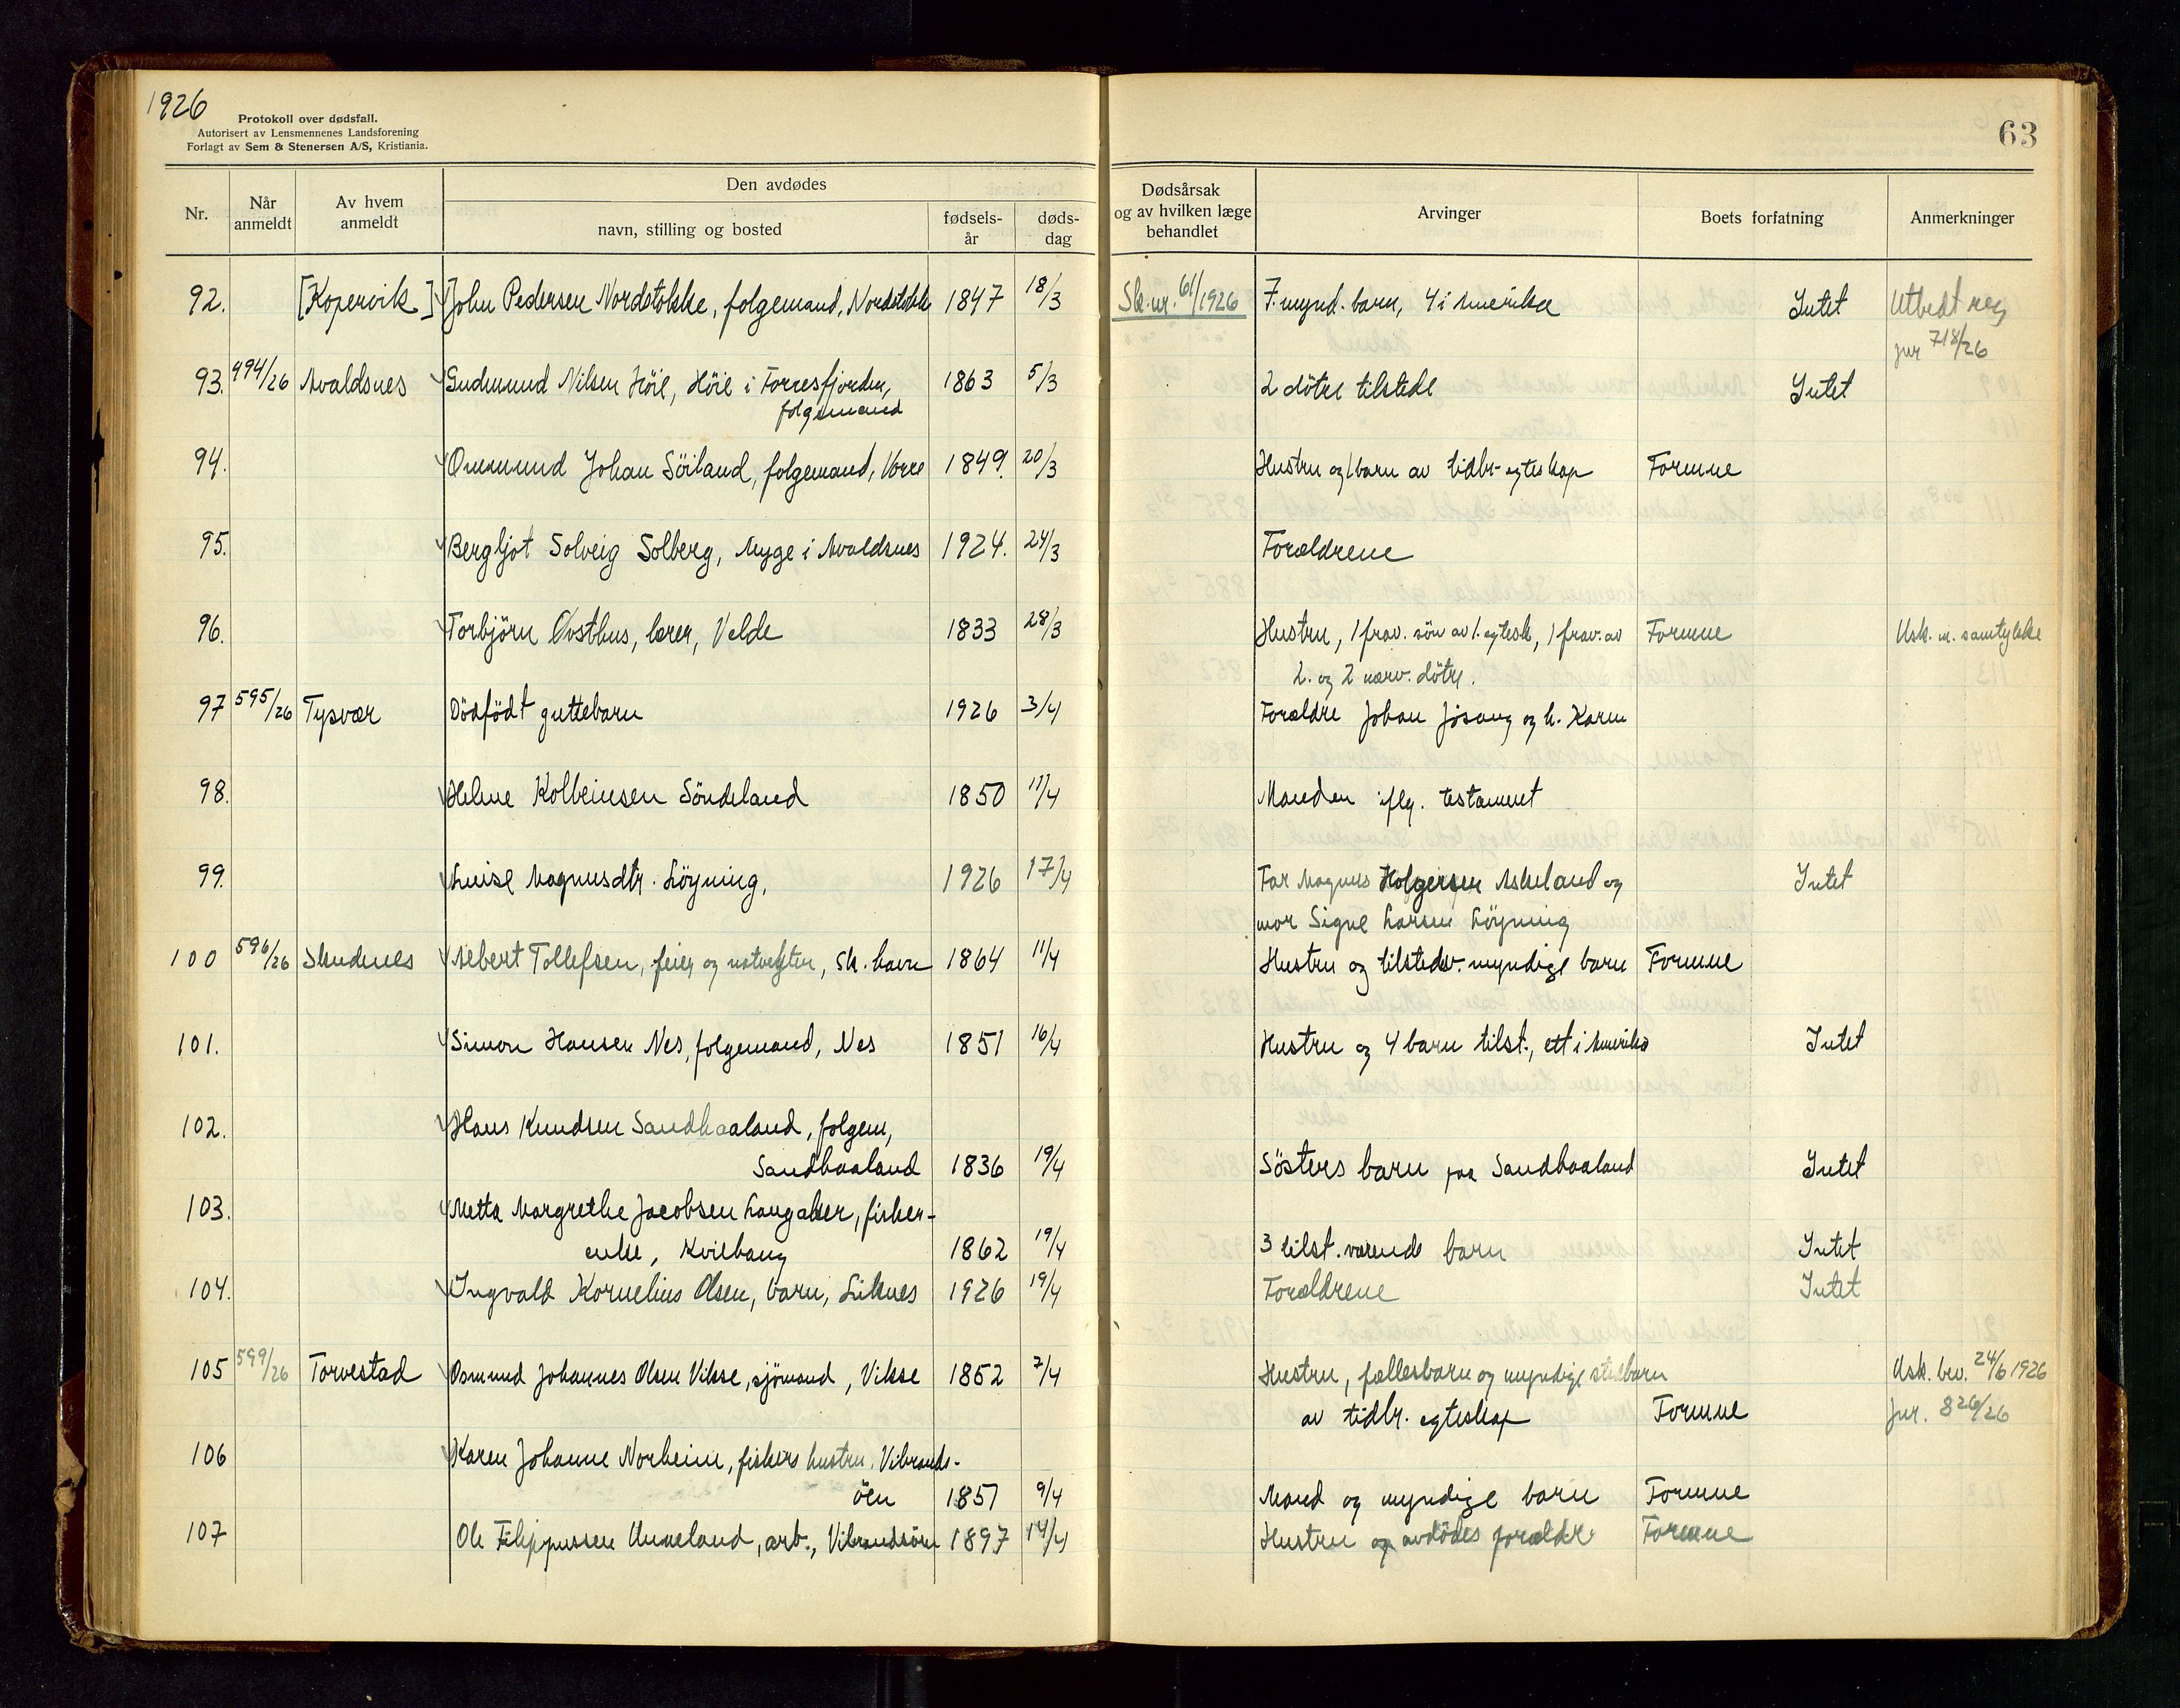 1926
Protokoll over dødsfall.
Autorisert av Lensmennenes Landsforening
Forlagt av Sem & Stenersen A/S, Kristiania.
63
Nr.
Når anmeldt
Av hvem anmeldt
Den avdødes
navn, stilling og bosted
fødsels-år
døds-dag
Dødsårsak og av hvilken læge behandlet
Arvinger
Boets forfatning
Anmerkninger
92. [Kopervik] John Pedersen Nordstokke, folgemand, Nordstokke 1847 18/3 Sk.nr. 61/1926 7 mynd. barn, 4 i Amerika Intet Utbedt
jnr 718/26
93. 494/26 Avaldsnes Gudmund Nilsen Höie, Höie i Förresfjorden, 1863 5/3 2 døtre tilstede Intet
folgemand
94. Ommund Johan Söiland, folgemand, Vorre 1849. 20/3 Hustru og 1 barn av tidl. egteskap Formue
95. Bergljot Solveig Solberg, Nygge i Avaldsnes 1924. 24/3 Forældrene
96. Torbjörn Øvsthus, lærer, Velde 1833 28/3 Hustru, 1 frav. sön av 1. egtesk, 1 frav. av Formue Usk. m. samtykke
2. og 2 nærv. døtre.
97 595/26 Tysvær Dödfödt guttebarn 1926 3/4 Forældre Johan Jösang og h. Karen
98. Helene Kolbeinsen Söndeland 1850 11/4 Manden iflg. testament
99. Luise Magnusdtr. Löyning, 1926 17/4 Far Magnus Holgersen Askeland og Intet
mor Signe Larsen Löyning
100 596/26 Skudenes Aebert Tollefsen, feier og natvekter, Sk. havn 1864 11/4 Hustru og tilstedev. myndige barn Formue
101. Simon Hansen Nes, folgemand, Nes 1851 16/4 Hustru og 4 barn tilst., ett i Amerika Intet
102. Hans Knudsen Sandhaaland, folgem,
Sandhaaland 1836 19/4 Søsters barn paa Sandhaaland Intet
103. Metta Margrethe Jacobsen Langaker, fisker-
enke, Kvilhaug 1862 19/4 3 tilst. værende barn Intet
104. Ingvald Kornelius Olsen, barn, Liknes 1926 19/4 Forældrene Intet
105 599/26 Torvestad Osmund Johannes Olsen Vikse, sjömand, Vikse 1852 7/4 Hustru, fællesbarn og myndige stedbarn Usk. bev. 24/6 1926
av tidl. egteskap Formue Jnr. 826/26
106 Karen Johanne Norheim, fiskers hustru, Vibrands-
öen 1851 9/4 Mand og myndige barn Formue
107 Ole Filippussen Unneland, arb., Vibrandsöen 1897 14/4 Hustru og avdødes forældre Formue